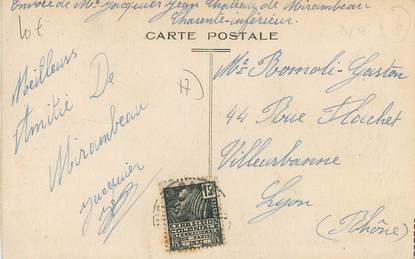 Envoie de Mr Jacquier Jean Château de Mirambeau
Charente-inférieur.
10€
CARTE POSTALE
Meilleurs
Amitié De
Mirambeau
Jacquier
Mr Romoli-Gaston
44 Rue Flachet
Villeurbanne
Lyon
(Rhône)
15c
EXPOSITION
COLONIALE
INTERNATIONALE
PARIS 1931